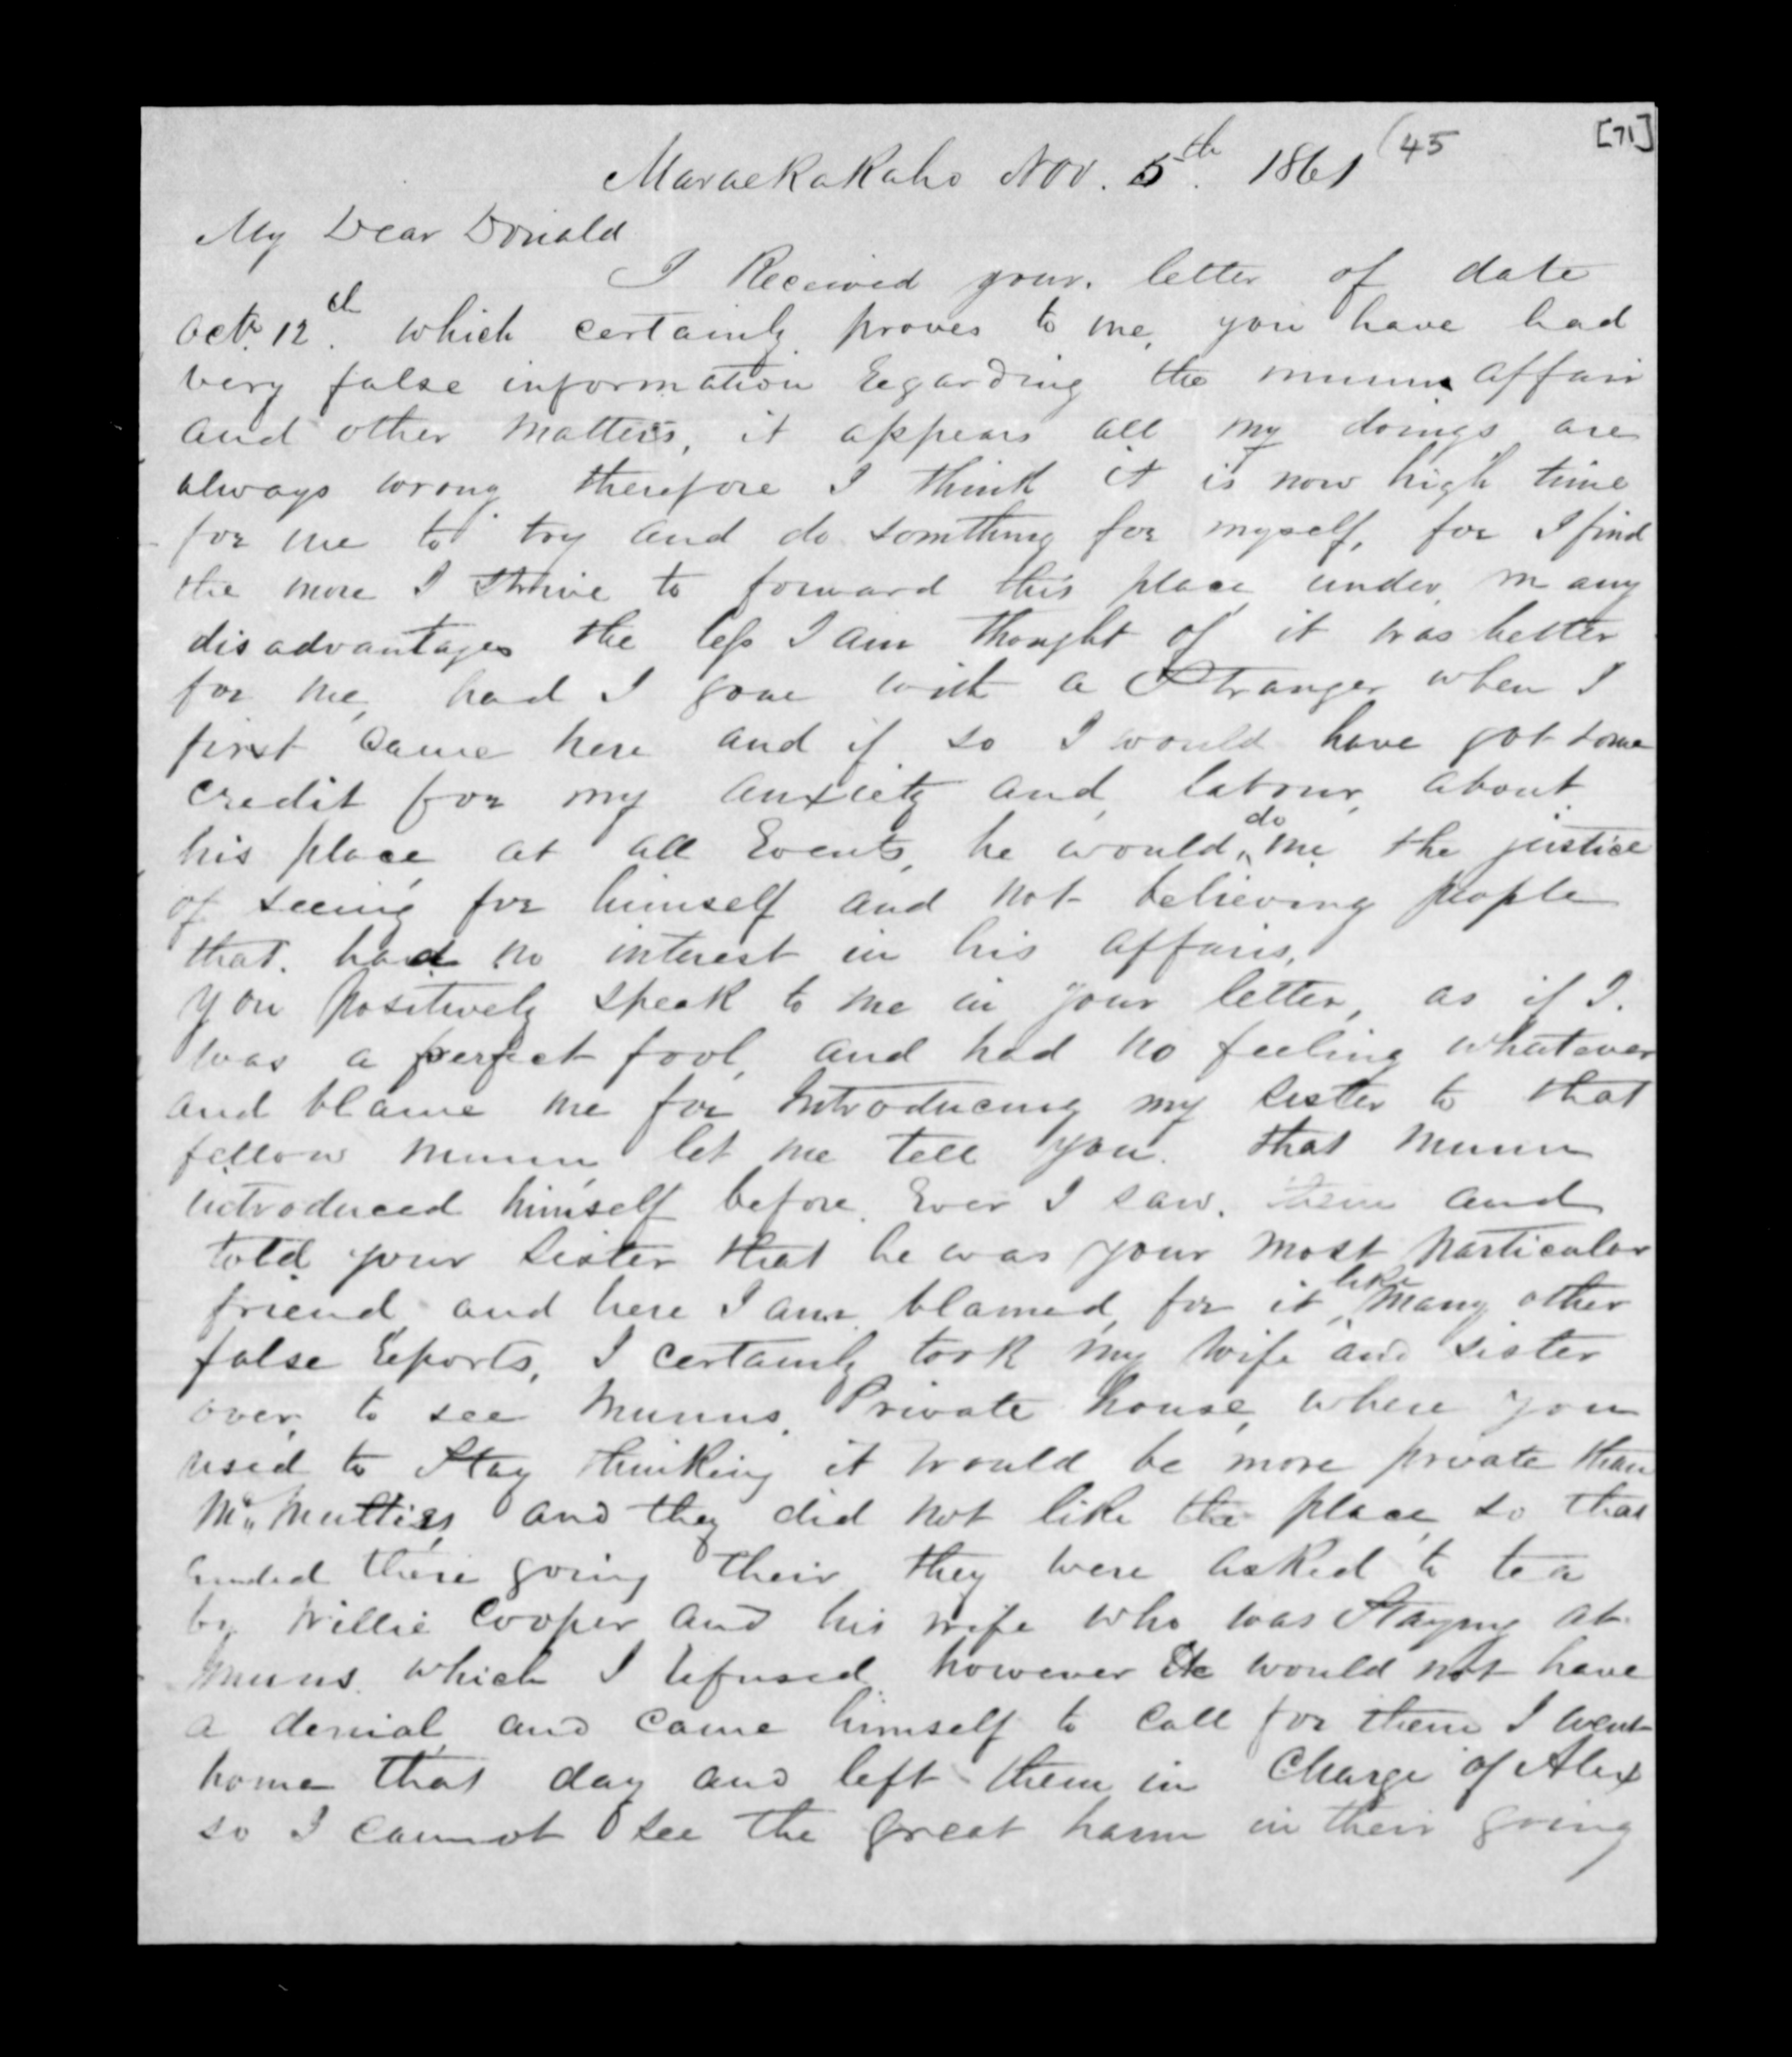 [71]
Maraekakaho Nov. 5th. 1861 (45
My Dear Donald
I Received your. letter of date
Octr. 12th. which certainly proves to me, you have had
very false information Regarding the munn affair
and other matters, it appears all my doings are
always wrong therefore I think it is now high time
for me to try and do somthing for myself, for I find
the more I strive to forward this place under many
disadvantages the less I am thought of it was better
for me, had I gone with a Stranger when I
first came here and if so I would have got some
credit for my anxiety and labour, about
his place at all Events, he would do me the justice
of seeing for himself and not believing people
that. had no interest in his affairs,
you positively speak to me in your letter, as if I.
was a perfect fool, and had no feeling whatever
and blame me for Introducing my sister to that
fellow munn let me tell you. that munn
introduced himself before Ever I saw. him and
told your sister that he was your most particular
friend and here I am blamed, for it, like many other
false Reports, I certainly took my wife and sister
over, to see Munns. Private house, where you
used to Stay thinking it would be more private than
and they did not like the place so that
ended there going their they were asked to tea
by Willie Cooper and his wife who was Staying at
Munns. which I refused however he would not have
a denial and came himself to call for them I went
home that day and left them in Charge of Alex
so I cannot see the great harm in their going